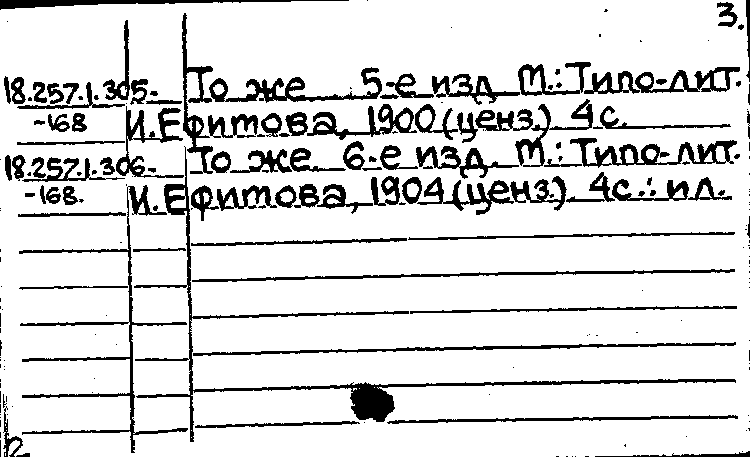 3.
18.257.1.305- То же 5-е изд М.: Типо-лит.
-168 И. Ефитова, 1900 (ценз.) 4 с.
18.257.1.306- То же. 6-е изд. М.: Типо-лит.
-168. И. Ефитова, 1904 (ценз.). 4с.: ил.